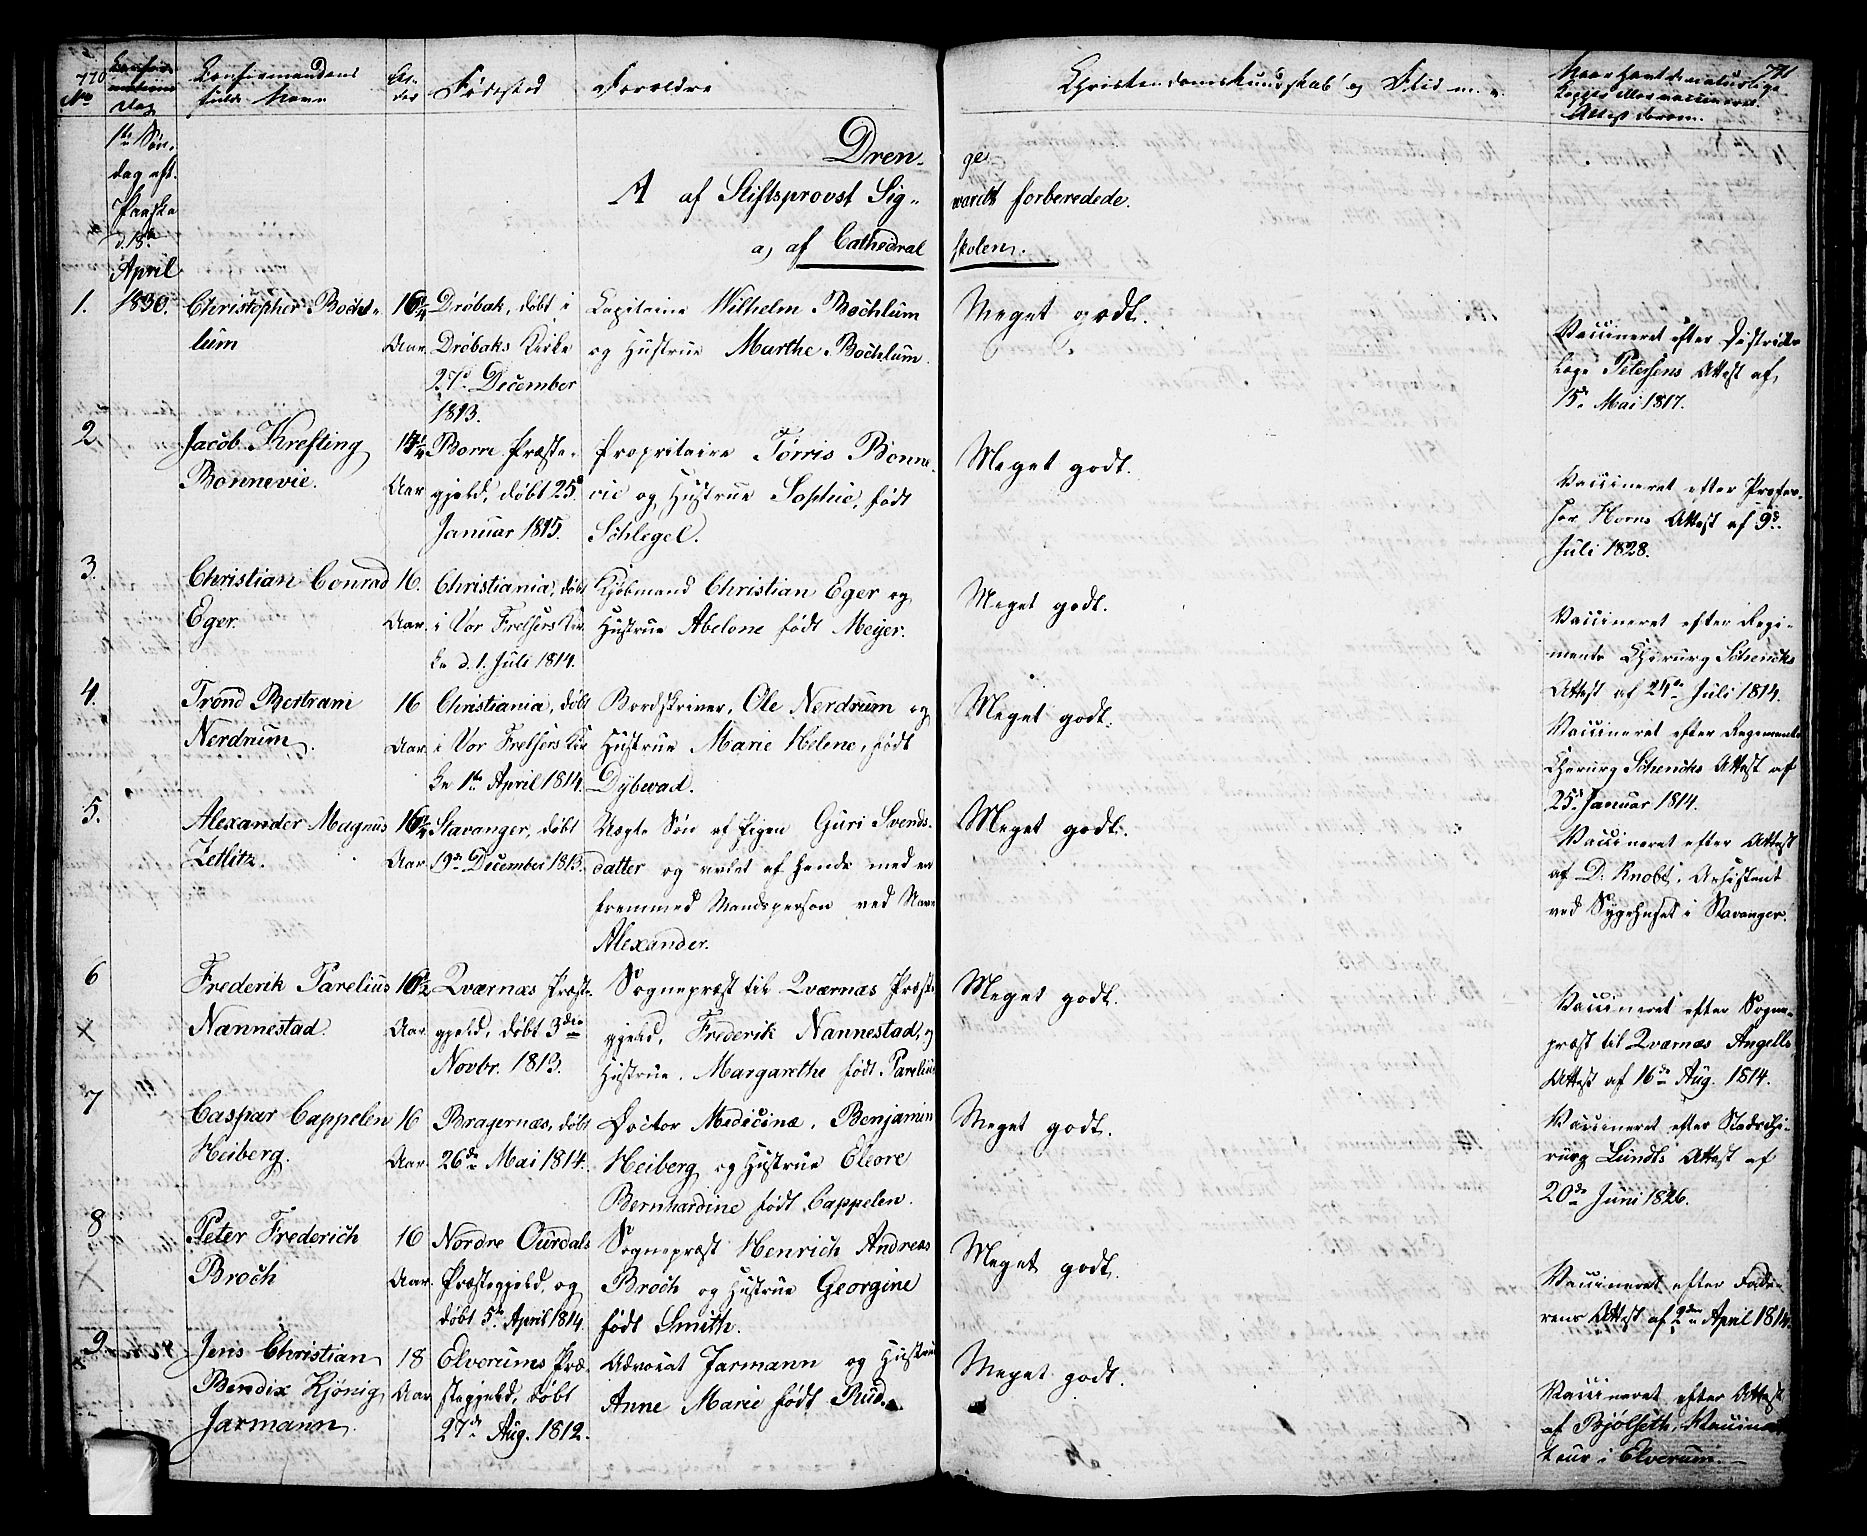 770
No
Confir-
mations
Dag
Confirmandens
fulde Navn
Al-
der
Fødested
Foreldre
Christendomskundskab og Flid m. v.
Naar havt de naturlige
Kopper eller vaccineret.
Attest derom.
771
1ste Søn-
dag eft.
Paaske
d. 18de
April
1830.
Dren-
ge
A af Stiftsprovst Sig-
wardt forberedede.
a) af Cathedral
skolen.
1.
Christopher Bochs-
lum
16 1/4
Aar.
Drøbak, døbt i
Drøbaks Kirke
27de December
1813.
Capitaine Wilhelm Bochlum
og Hustrue Marthe Bochlum.
Meget godt.
Vaccineret efter Districts
Læge Petersens Attest af
15de Mai 1817.
2
Jacob Krefting
Bonnevie.
Aar.
Borre Præste-
gjeld, døbt 25de
Januar 1815.
Proprietaire Tørris Bonne-
vie og Hustrue Sophie, født
Schlegel.
Meget godt.
Vaccineret efter Profes-
sor Horns Attest af 9de
Juli 1828.
3.
Christian Conrad
Eger.
16.
Aar.
Christiania, døbt
i Vor Frelsers Kir-
ke d. 1. Juli 1814.
Kjøbmand Christian Eger og
Hustrue Abelone født Meijer.
Meget godt.
Vaccineret efter Regi-
ments Chirurg Schencks
Attest af 24de Juli 1814.
4.
Trond Bertram
Nerdrum.
16
Aar.
Christiania, døbt
i Vor Frelsers Kir
ke 1ste April 1814.
Bordskriver, Ole Nerdrum og
Hustrue Marie Helene, født
Dybwad.
Meget godt.
Vaccineret efter Regements
Chirurg Schencks Attest af
25de Januar 1814.
5.
Alexander Magnus
Zetlitz.
16 1/4
Aar.
Stavanger, døbt
19de December 1813.
Uægte Søn af Pigen Guri Svends-
datter og avlet af hende med en
fremmed Mandsperson ved Navn
Alexander.
Meget godt.
Vaccineret efter Attest
af D. Knobt, Assistent
ved Sygehuset i Stavanger.
6
×
Frederik Parelius
Nannestad.
16 1/2
Aar.
Qværnæs Præste-
gjeld, døbt 3die
Novbr. 1813.
Sognepræst til Qværnæs Præste
gjeld, Frederik Nannestad, og
Hustrue, Margarethe født Parelius
Meget godt.
Vaccineret efter Sogne-
præst til Qværnæs Angells
Attest af 16de Aug. 1814.
7
Caspar Cappelen
Heiberg.
16
Aar.
Bragernæs, døbt
26de Mai 1814.
Doctor Medicinæ, Benjamin
Heiberg og Hustrue Eleore
Bernhardine født Cappelen.
Meget godt.
Vaccineret efter Stadschi-
rurg Lundts Attest af
20de Juni 1826.
8
×
Peter Frederich
Broch
16
Aar.
Nordre Ourdals
Præstegjeld, og
døbt 5te April 1814.
Sognepræst Henrich Andreas
Broch og Hustrue Georgine
født Smith.
Meget godt.
Vaccineret efter Fade-
rens Attest af 2den April 1814.
9.
Jens Christian
Bendix Kjønig
Jarmann.
18
Aar
Elverums Præ-
stegjeld, døbt
27de Aug. 1812.
Advocat Jarmann og Hustrue
Anne Marie født Rud.
Meget godt.
Vaccineret efter Attest
af Bjølseth, Vaccina-
teur i Elverum.